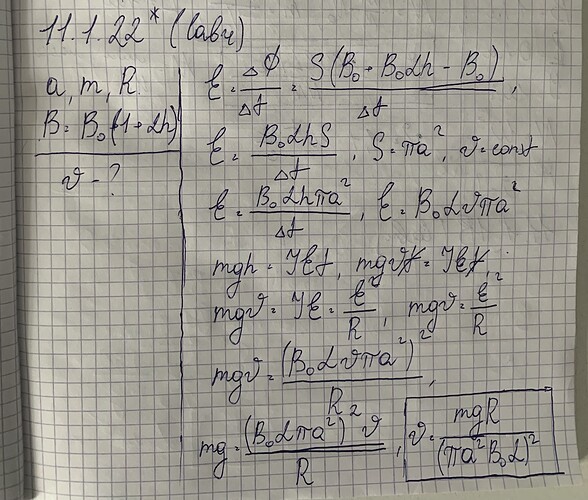 11.1.22* (Савч)
a, m, R
B = B₀(1+αh)
v - ?
ℰ = ΔΦ/Δt = S(B₀ + B₀αh - B₀)/Δt,
ℰ = B₀αhS/Δt, S = πa², v = const
ℰ = B₀αhπa²/Δt, ℰ = B₀αvπa²
mgh = Iℰt, mgvt = Iℰt,
mgv = Iℰ = ℰ²/R, mgv = ℰ²/R
mgv = (B₀αvπa²)²/R,
mg = (B₀απa²)²v/R, v = mgR/(πa²B₀α)²